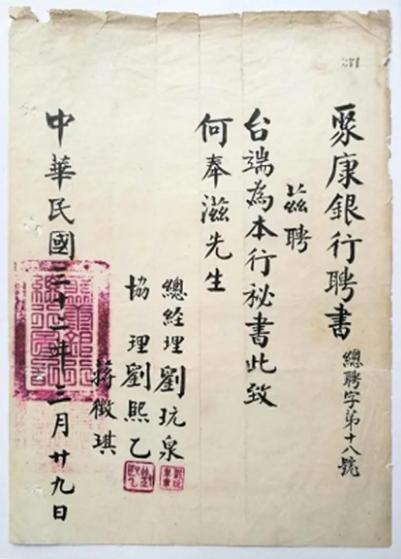 聚康銀行聘書
總聘字第十八號
茲聘
台端為本行秘書此致
何奉滋先生
總經理劉玩泉
協理劉熙乙
蔣徵琪
中華民國三十二年三月廿九日